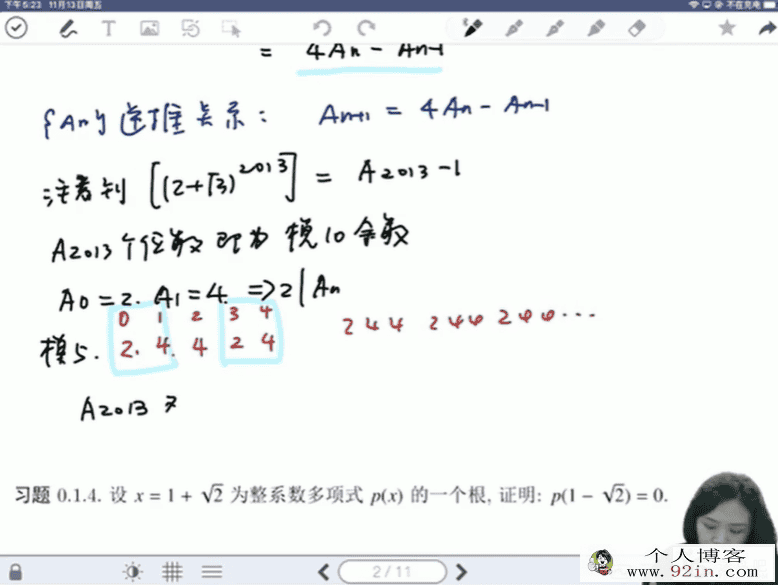 下午5:23 11月13日周五
不在充电
= 4An - An-1
{An} 递推关系: An+1 = 4An - An-1
注意到 [(2+√3)^2013] = A2013 - 1
A2013 个位数 即为 模10余数
A0 = 2. A1 = 4. => 2 | An
0 1 2 3 4
模5. 2. 4. 4 2 4
2 4 4 2 4 4 2 4 4 ...
A2013
习题 0.1.4. 设 x = 1 + √2 为整系数多项式 p(x) 的一个根, 证明: p(1 − √2) = 0.
2 / 11
个人博客
www.92in.com